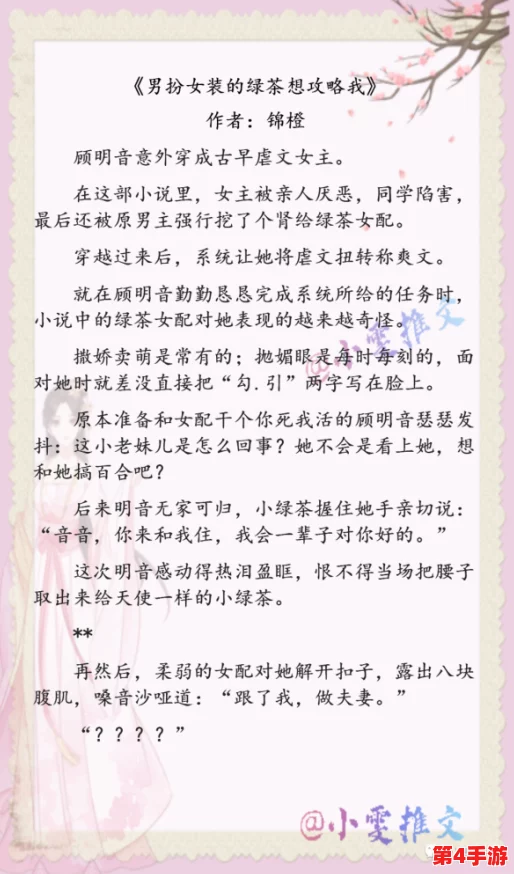 《男扮女装的绿茶想攻略我》
作者：锦橙
顾明音意外穿成古早虐文女主。
在这部小说里，女主被亲人厌恶，同学陷害，
最后还被原男主强行挖了个肾给绿茶女配。
穿越过来后，系统让她将虐文扭转称爽文。
就在顾明音勤勤恳恳完成系统所给的任务时，
小说中的绿茶女配对她表现的越来越奇怪。
撒娇卖萌是常有的；抛媚眼是每时每刻的，面
对她时就差没直接把“勾.引”两字写在脸上。
原本准备和女配干个你死我活的顾明音瑟瑟发
抖：这小老妹儿是怎么回事？她不会是看上她，想
和她搞百合吧？
后来明音无家可归，小绿茶握住她手亲切说：
“音音，你来和我住，我会一辈子对你好的。”
这次明音感动得热泪盈眶，恨不得当场把腰子
取出来给天使一样的小绿茶。
**
再然后，柔弱的女配对她解开扣子，露出八块
腹肌，嗓音沙哑道：“跟了我，做夫妻。”
“？？？？”
@小雯推文
@小雯推文
第4手游